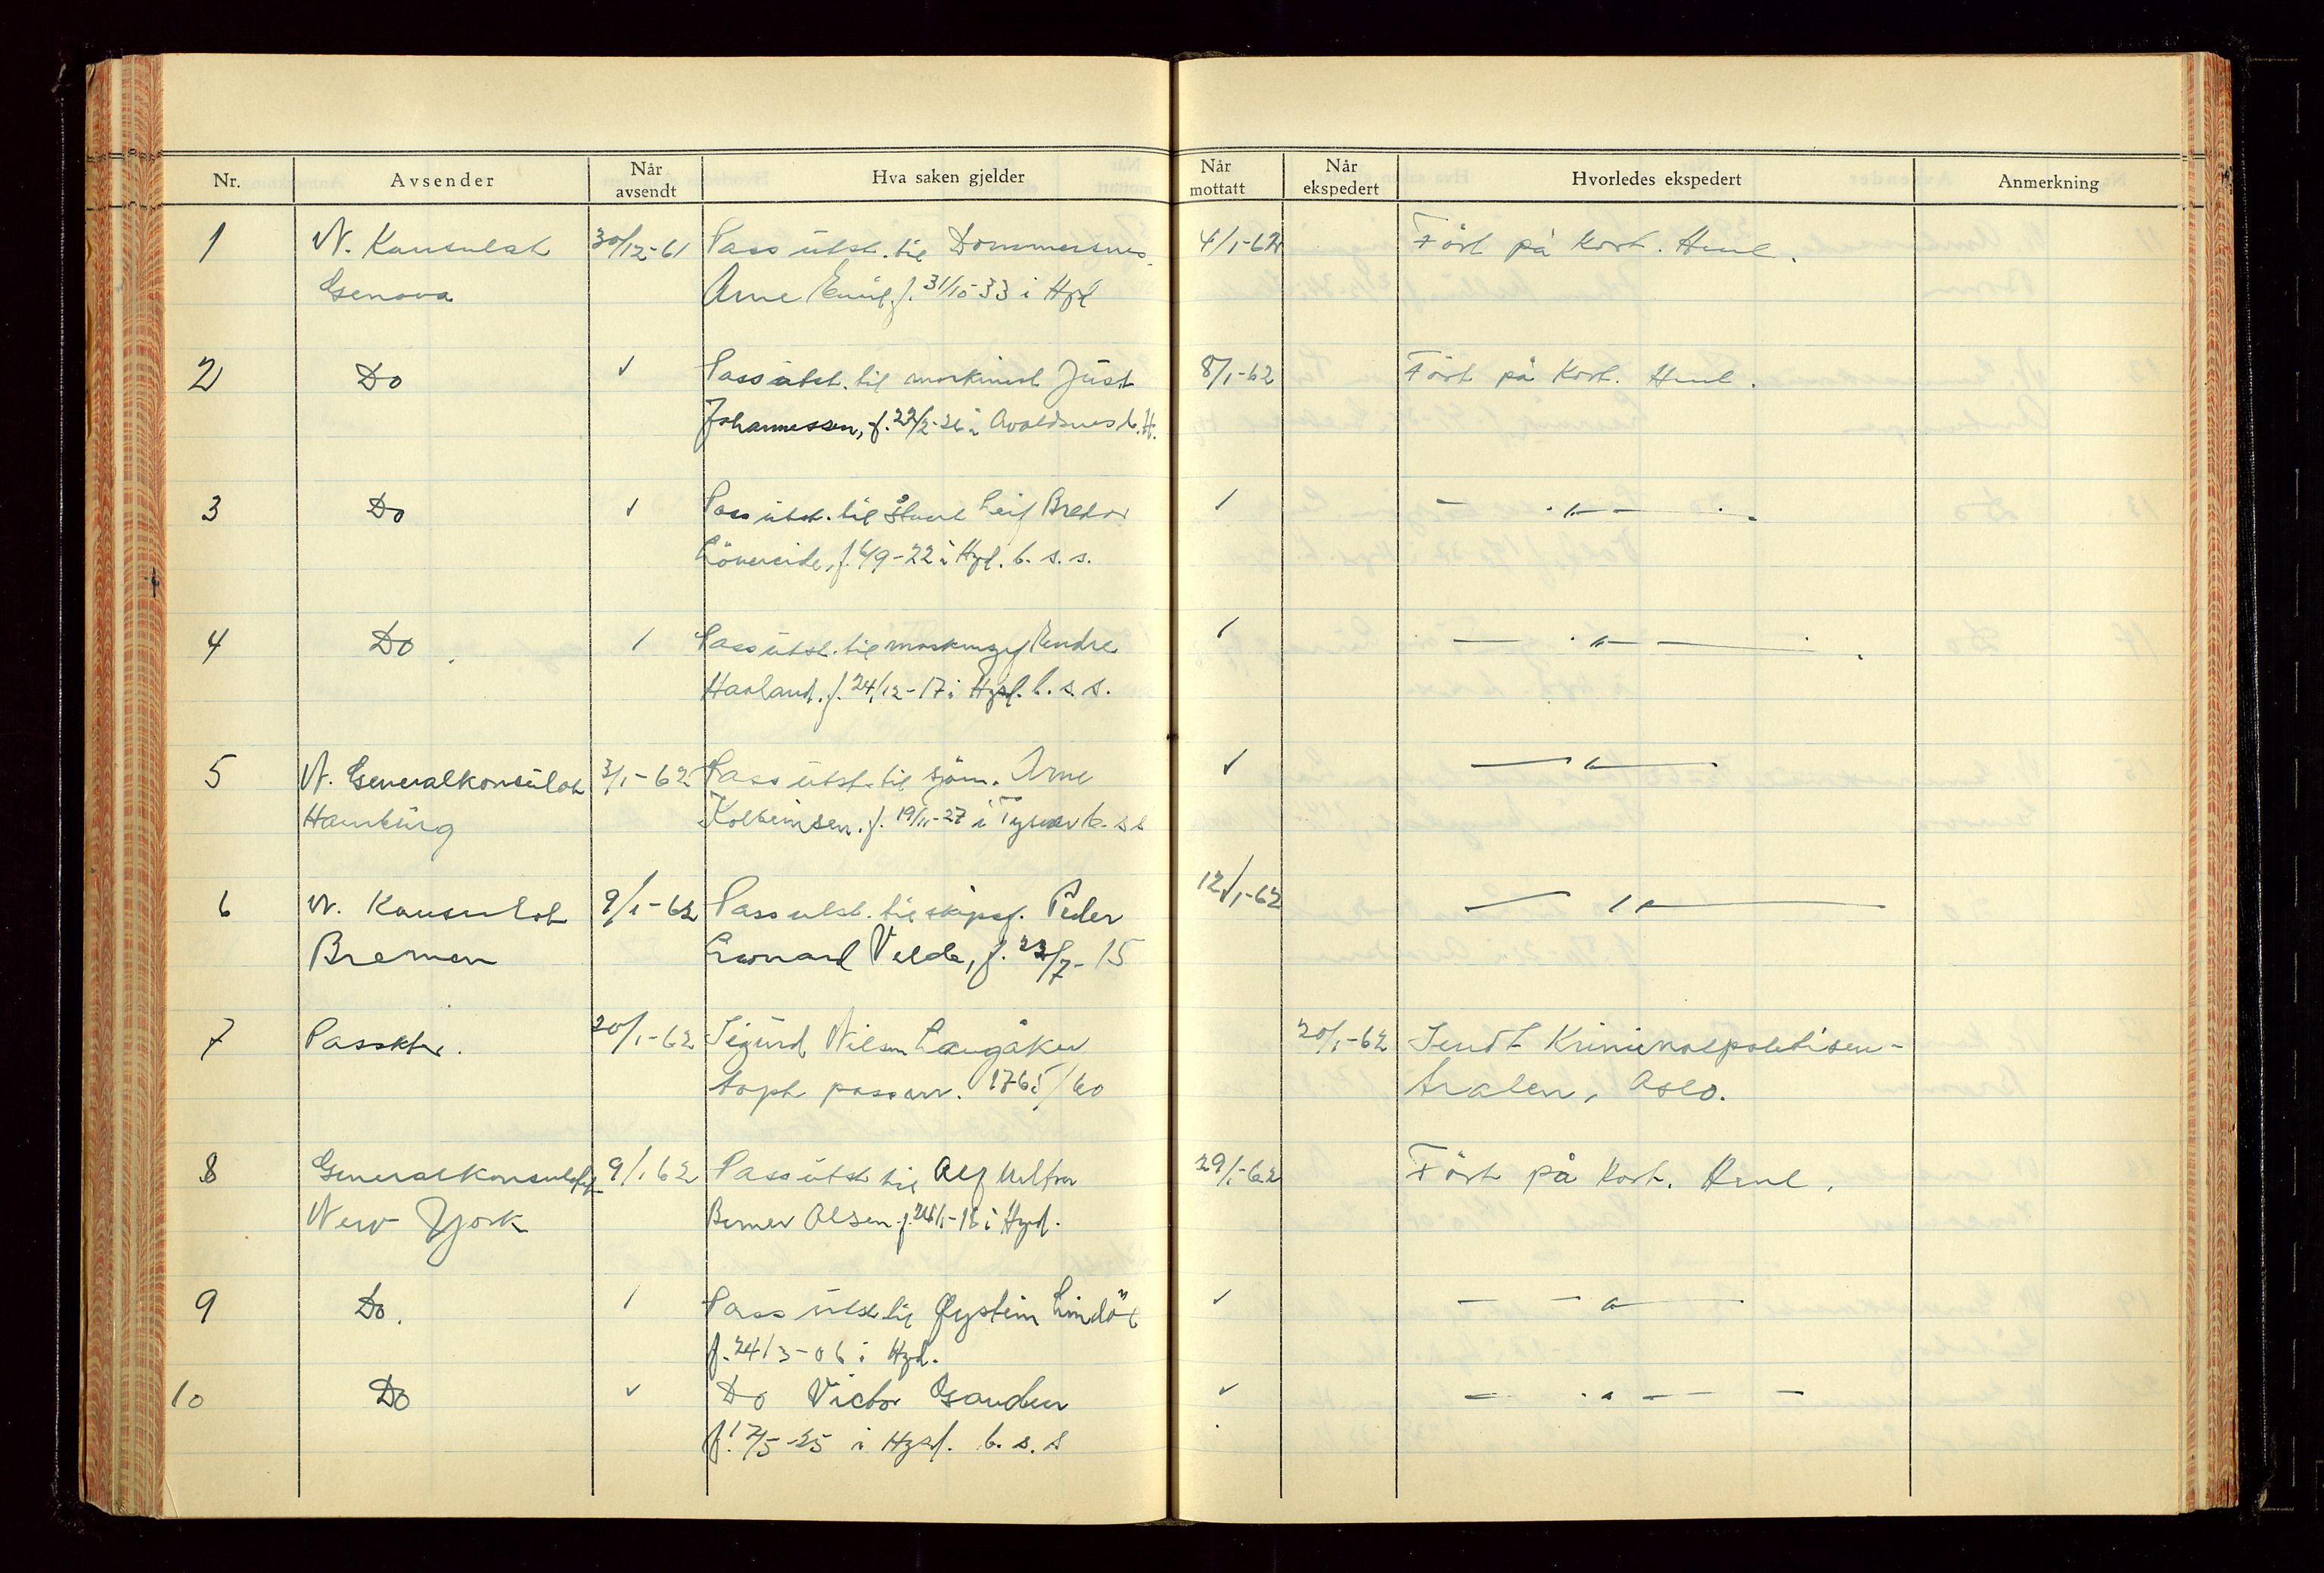 Nr. Avsender Når avsendt Hva saken gjelder Når mottatt Når ekspedert Hvorledes ekspedert Anmerkning
1 N. Konsulat 30/12-61 Pass utst. til Dommersnes 4/1-62 Ført på kort. Henl.
Genova Arne Emil f. 31/10-33 i Hgd
2 Do ✓ Pass utst. til maskinist Just 8/1-62 Ført på kort. Henl.
Johannessen, f. 22/2-26 i Avaldsnes b. H.
3 Do ✓ Pass utst. til Leif ✓ — " —
f. 6/9-22 i Hgd. b. s. s.
4 Do ✓ Pass utst. til Endre ✓ — " —
Havland. f. 24/12-17 i Hgsd. b. s. s.
5 N. Generalkonsulat 3/1-62 Pass utst. til sjøm. Arne ✓ — " —
Hamburg Kolbeinsen. f. 19/11-27 i Tysvær b. s s
6 N. Konsulat 9/1-62 Pass utst. til skipsf. Peder 12/1-62 — " —
Bremen Leonard Velde, f. 23/7-15
7 Passktr. 20/1-62 Sigurd Nilsen Langåker 20/1-62 Sendt Kriminalpolitisen-
tapt pass nr. 1765/60 tralen, Oslo.
8 Generalkonsulatet 9/1 62 Pass utst til Alf 29/1-62 Ført på kort. Henl.
New York Berner Olsen f. i Hgsd.
9 Do. ✓ Pass utst til Øystein Lindøe ✓ — " —
f. 24/3-06 i Hgd.
10 Do ✓ Do Victor ✓ — " —
i Hgsd. b. s. s